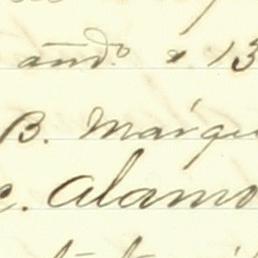 and.º a 13
B. Marqu
c. Alamo